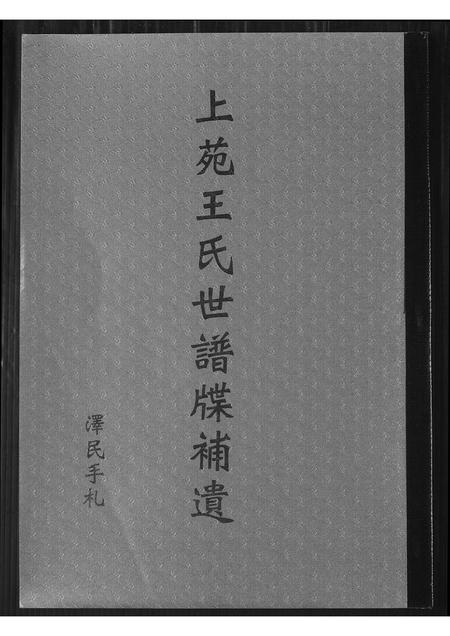 上苑王氏世譜牒補遺
澤民手札